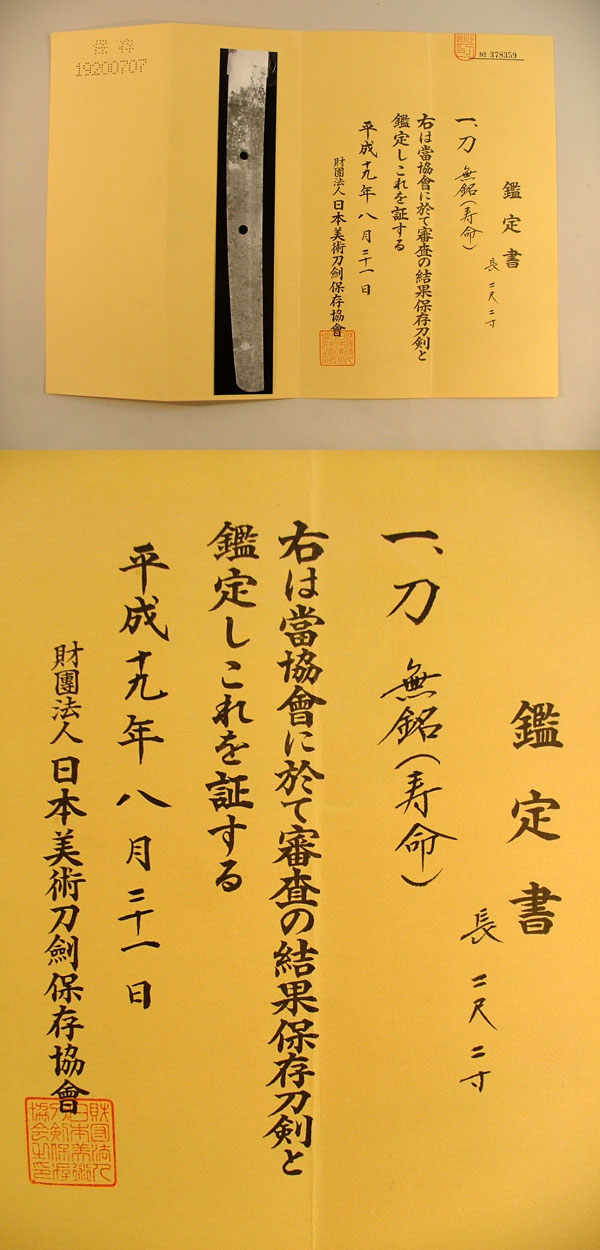 № 378359
鑑定書
一、刀 無銘(寿命)
長 二尺二寸
右は當協會に於て審査の結果保存刀剣と
鑑定しこれを証する
平成十九年八月二十一日
財團法人日本美術刀劍保存協會
保存
19200707
鑑定書
長 二尺二寸
一、刀 無銘(寿命)
右は當協會に於て審査の結果保存刀剣と
鑑定しこれを証する
平成十九年八月二十一日
財團法人日本美術刀劍保存協會
財団法人
日本美術
刀剣保存
協会之印